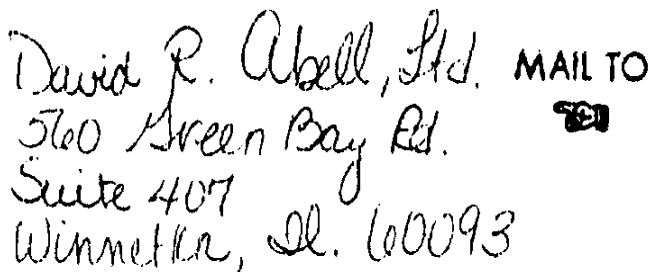 David R. Abell, Ltd. MAIL TO
560 Green Bay Rd.
Suite 407
Winnetka, Il. 60093